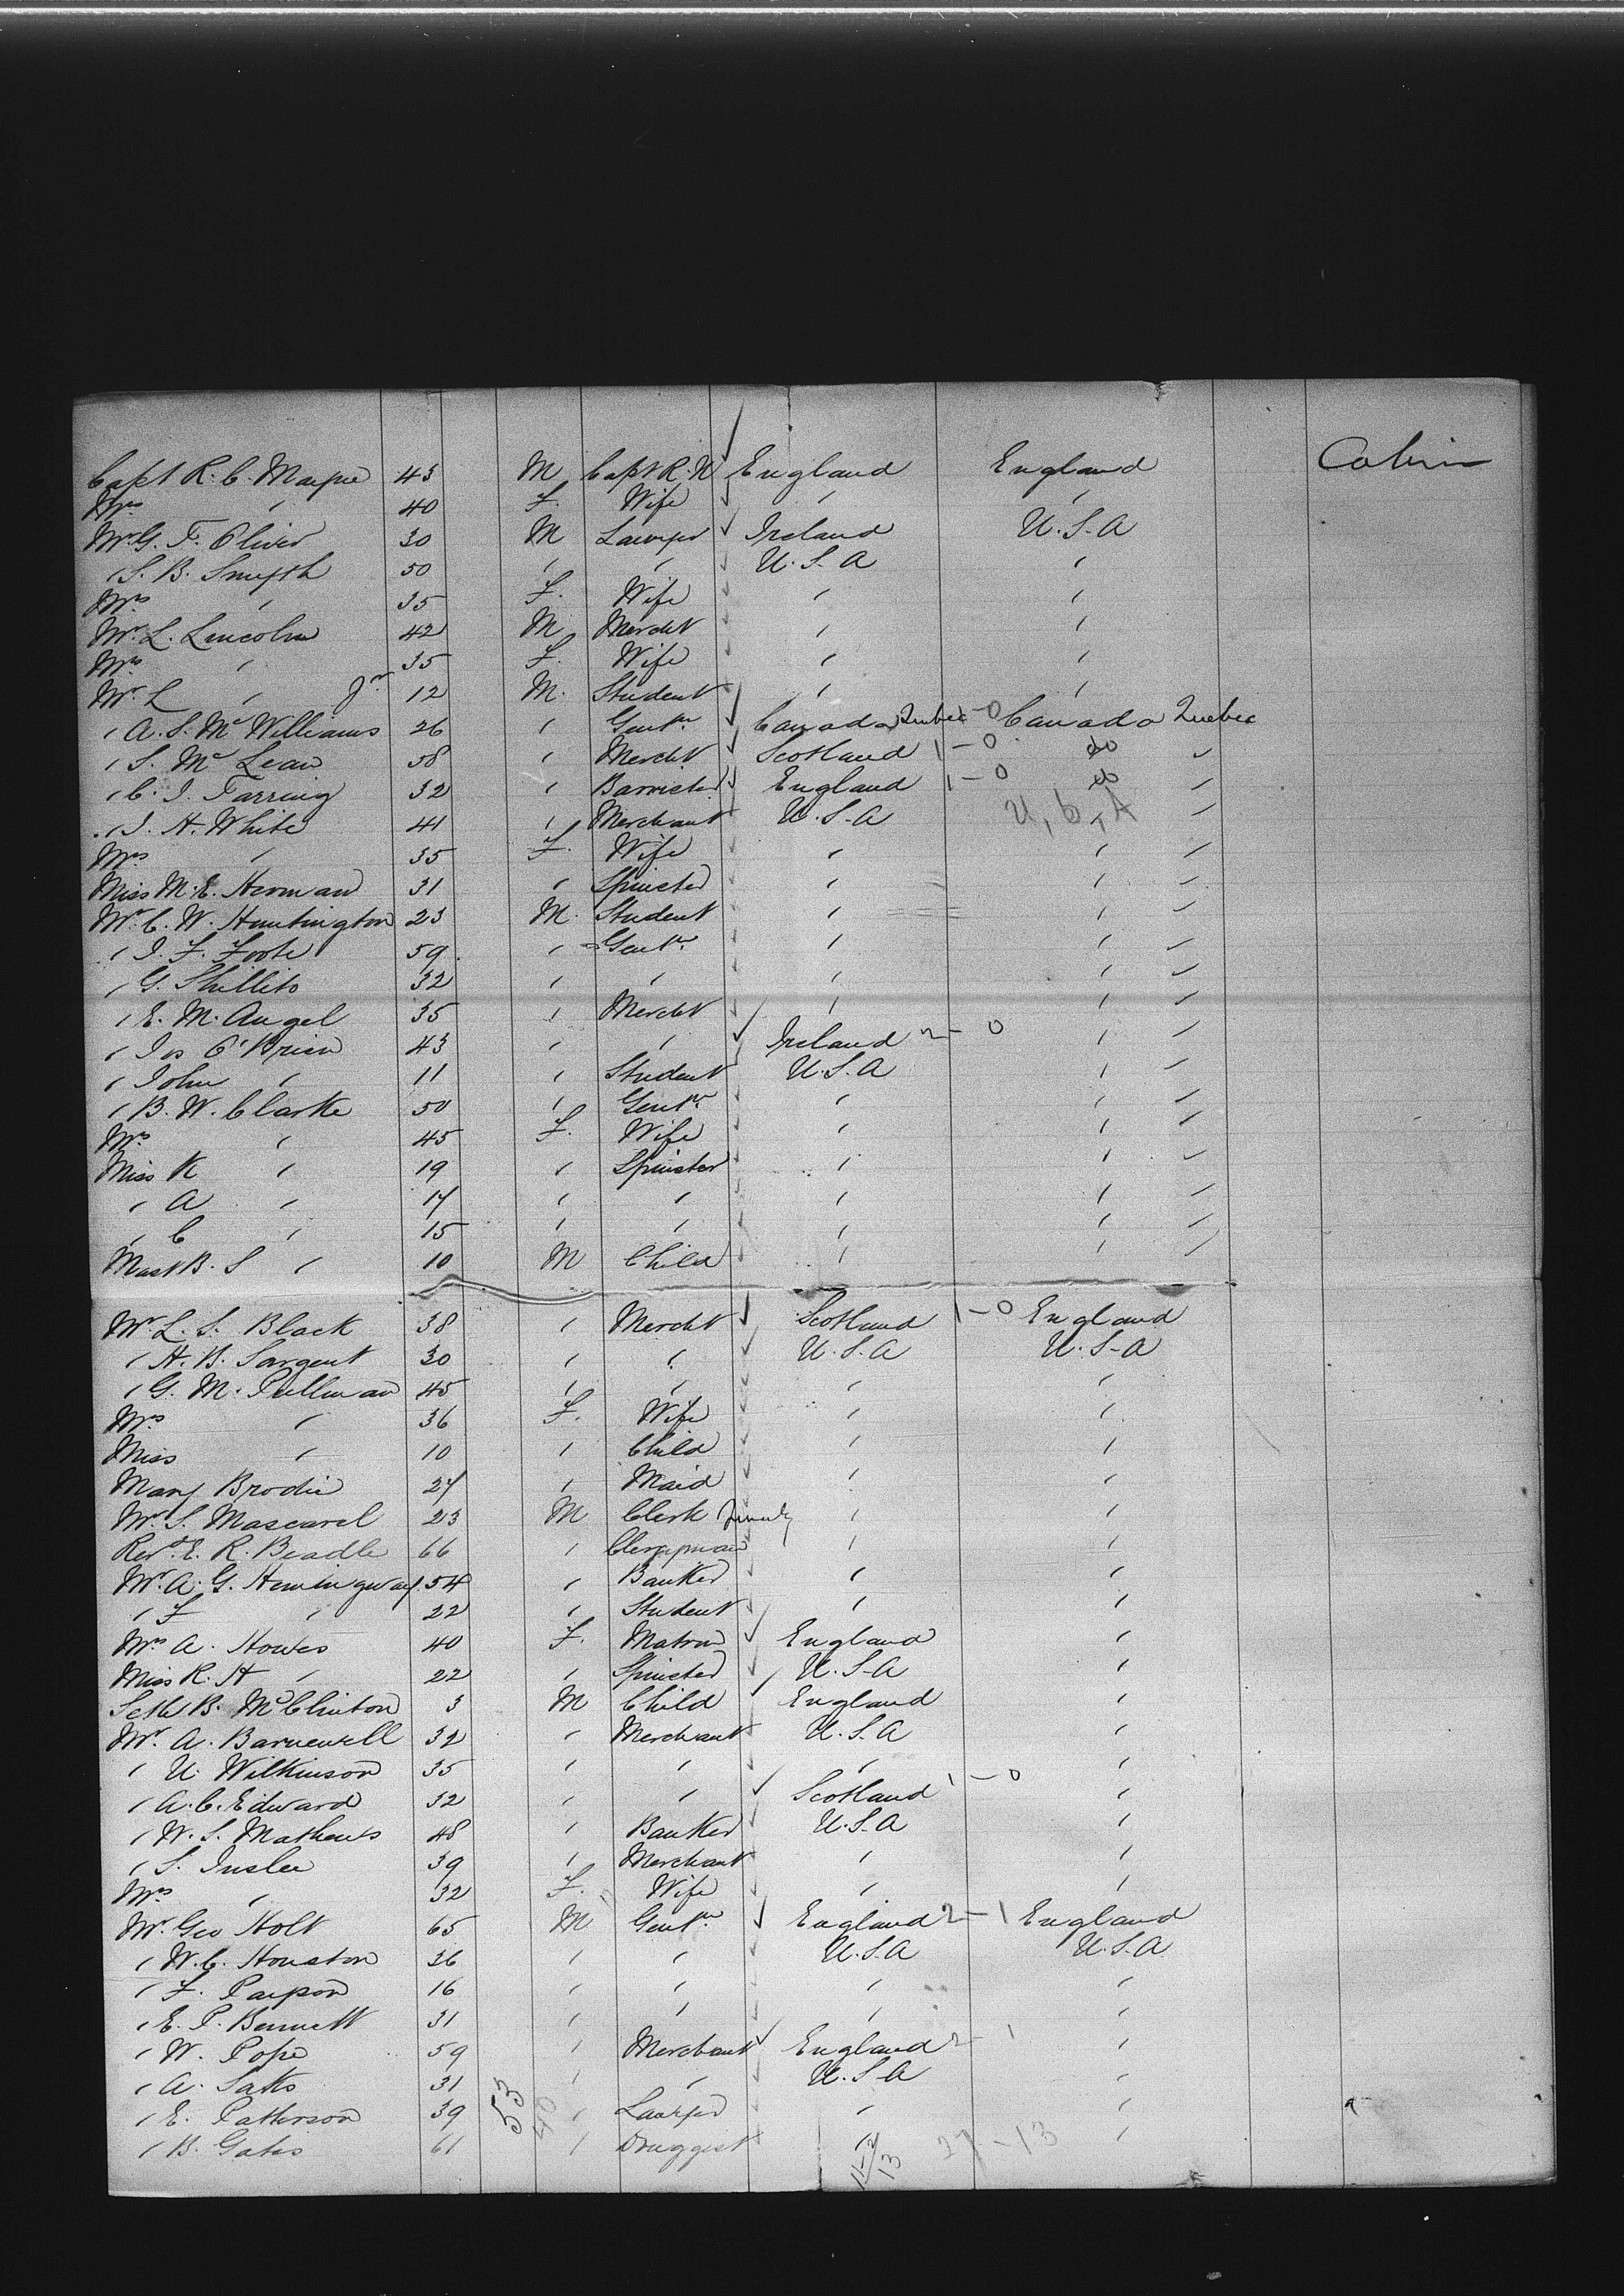 Cabin
Capt R. C. Mayne 43 M Capt R. N England England
Mrs " 40 F. Wife " "
Mr G. F. Oliver 30 M Lawyer Ireland U.S.A
" S. B. Smyth 50 " " U.S.A "
Mrs " 35 F. Wife " "
Mr L. Lincoln 42 M Mercht " "
Mrs " 35 F. Wife " "
Mr L " Jr 12 M. Student " "
" A. S. Mc Williams 26 " Gentn Canada Quebec - 0 Canada Quebec
" S. Mc Lean 58 " Mercht Scotland 1 - 0 do "
" C. J. Tarring 32 " Barrister England 1 - 0 do "
" J. H. White 41 " Merchant U.S.A U, S, A "
Mrs " 35 F. Wife " " "
Miss M. E. Herman 31 " Spinster " " "
Mr C. W. Huntington 23 M. Student " " "
" J. F. Foote 59 " Gentn " " "
" G. Shillito 32 " " " " "
" E. M. Angel 35 " Mercht " " "
" Jas O'Brien 43 " " Ireland 2 - 0 " "
" John " 11 " Student U.S.A " "
" B. W. Clarke 50 " Gentn " " "
Mrs " 45 F. Wife " " "
Miss K " 19 " Spinster " " "
" A " 17 " " " " "
" C " 15 " " " " "
Mast B. S " 10 M Child " " "
Mr L. S. Black 38 " Mercht Scotland 1 - 0 England
" H. B. Sargent 30 " " U.S.A U.S.A
" G. M. Pullman 45 " " " "
Mrs " 36 F. Wife " "
Miss " 10 " Child " "
Mary Brodie 27 " Maid " "
Mr S. Mascarel 23 M Clerk " "
Revd. E. R. Beadle 66 " Clergyman " "
Mr. A. G. Hemingway 54 " Banker " "
" F " 22 " Student " "
Mrs A. Howes 40 F. Matron England "
Miss R. H " 22 " Spinster U.S.A "
Seth B. McClinton 3 M Child England "
Mr. A. Barnewell 32 " Merchant U.S.A "
" U. Wilkinson 35 " " " "
" A. C. Edward 32 " " Scotland 1 - 0 "
" W. S. Mathews 48 " Banker U.S.A "
" S. Inslee 39 " Merchant " "
Mrs " 32 F. Wife " "
Mr. Geo Holt 65 M Gentn England 2 - 1 England
" W. C. Houston 36 " " U.S.A U.S.A
" F. 16 " " " "
" E. P. Bennett 31 " " " "
" W. Pope 59 " Merchant England 2 - 1 "
" A. Saks 31 " " U.S.A "
" E. Patterson 39 " Lawyer " "
" B. Gates 61 " Druggist " "
53
40
27 - 13